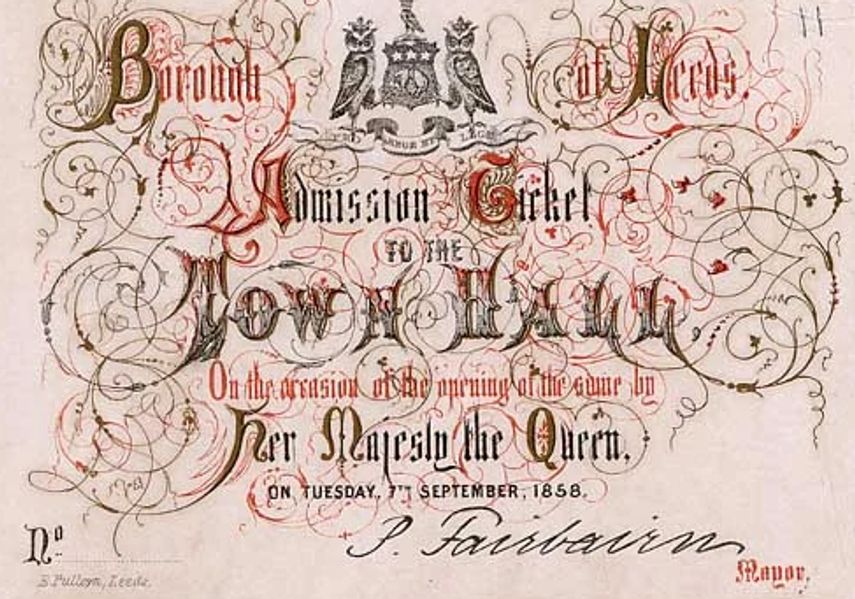 Borough of Leeds.
PRO REGE ET LEGE
Admission Ticket
TO THE
TOWN HALL,
On the occasion of the opening of the same by
Her Majesty the Queen.
ON TUESDAY, 7TH SEPTEMBER, 1858.
P. Fairbairn
Mayor.
No.
B. Pulleyn, Leeds.